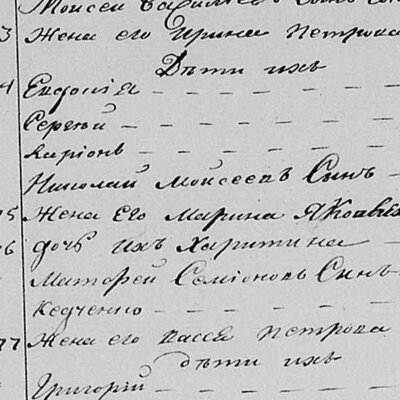 Моисей Васильевъ Сынъ
3 Жена его Ирина Петрова
Дѣти ихъ
4 Евдокія
Сергѣй
Ларіонъ
Николай Моисеевъ Сынъ
5 Жена Его Марина Яковл
6 дочь ихъ Харитина
Матфей Семіоновъ Сынъ
77 Жена его Васса Петрова
дѣти ихъ
Григорій